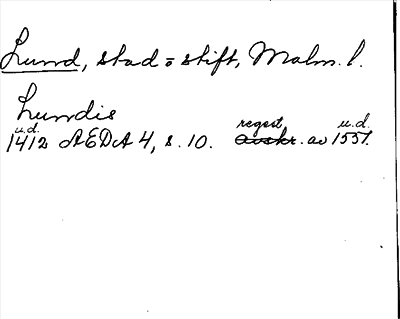 Lund, stad = stift, Malm. l.
Lundis
u.d. regest u.d.
1412 AEDA 4, s. 10. avskr. av 1551.